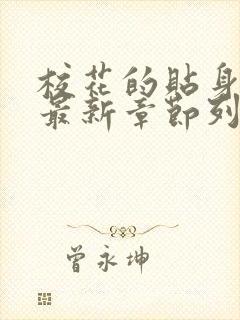 校花的貼身
最新章節列
曾永坤